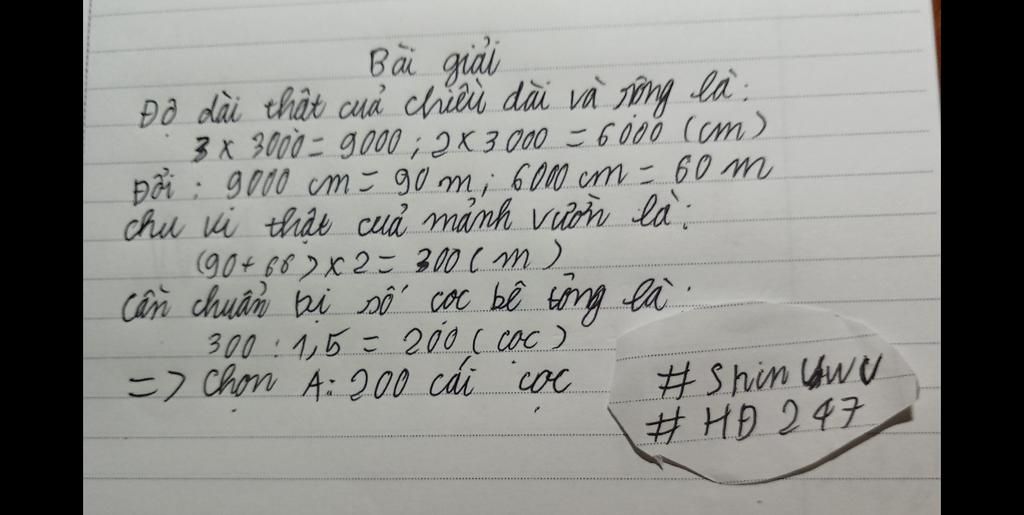 Bài giải
Độ dài thật cuả chiều dài và rộng là:
3 x 3000 = 9000 ; 2 x 3000 = 6000 (cm)
Đổi : 9000 cm = 90 m ; 6000 cm = 60 m
chu vi thật cuả mảnh vườn là:
(90 + 60) x 2 = 300 ( m )
Cần chuẩn bị số cọc bê tông là:
300 : 1,5 = 200 ( cọc )
=> Chọn A: 200 cái cọc
# Shin UwU
# HĐ 247